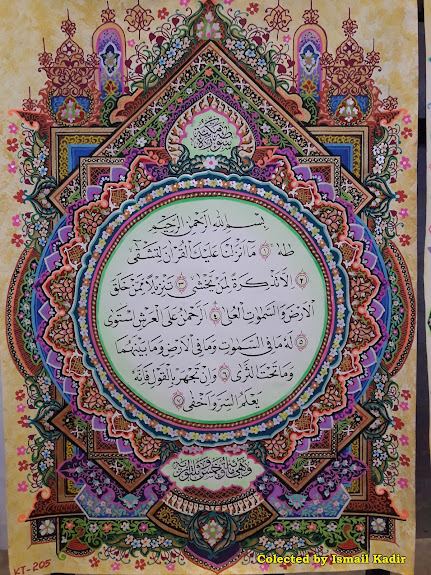 سورة طه مكية
بسم الله الرحمن الرحيم
طه ١ ما أنزلنا عليك القرآن لتشقى
٢ إلا تذكرة لمن يخشى ٣ تنزيلا ممن خلق
الأرض والسموات العلى ٤ الرحمن على العرش استوى
٥ له ما في السموات وما في الأرض وما بينهما
وما تحت الثرى ٦ وإن تجهر بالقول فإنه
يعلم السر وأخفى ٧
وهي مائة وخمس وثلاثون آية
KT-205
Colected by Ismail Kadir